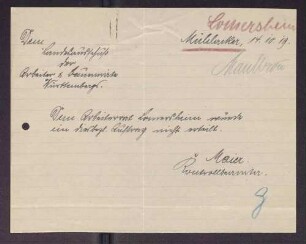 Lomersheim
Mühlacker, 14.10.19.
Maulbronn
Dem
Landesausschuß
der
Arbeiter & Bauernräte
Württembergs.
Dem Arbeiterrat Lomersheim wurde
ein diesbezgl. Auftrag nicht erteilt.
Maier